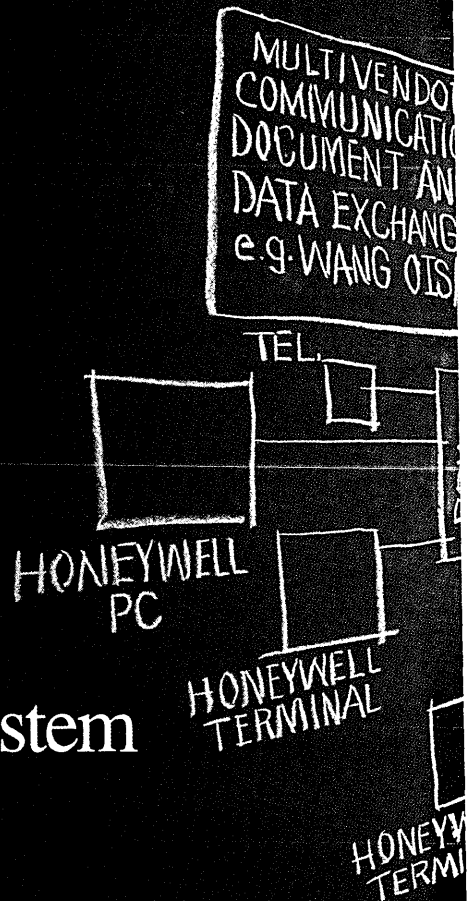 MULTIVENDO
COMMUNICATIO
DOCUMENT AN
DATA EXCHANG
e.g. WANG OIS
TEL.
HONEYWELL
PC
HONEYWELL
TERMINAL
stem
HONEYW
TERMI